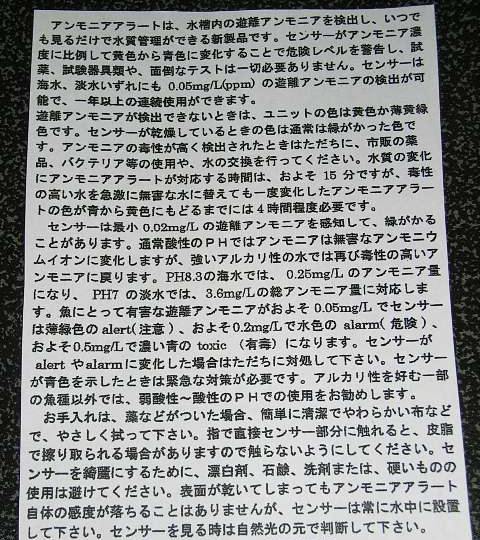 アンモニアアラートは、水槽内の遊離アンモニアを検出し、いつで
も見るだけで水質管理ができる新製品です。センサーがアンモニア濃
度に比例して黄色から青色に変化することで危険レベルを警告し、試
薬、試験器具類や、面倒なテストは一切必要ありません。センサーは
海水、淡水いずれにも 0.05mg/L(ppm) の遊離アンモニアの検出が可
能で、一年以上の連続使用ができます。
遊離アンモニアが検出できないときは、ユニットの色は黄色か薄黄緑
色です。センサーが乾燥しているときの色は通常は緑がかった色で
す。アンモニアの毒性が高く検出されたときはただちに、市販の薬
品、バクテリア等の使用や、水の交換を行ってください。水質の変化
にアンモニアアラートが対応する時間は、およそ 15 分ですが、毒性
の高い水を急激に無害な水に替えても一度変化したアンモニアアラー
トの色が青から黄色にもどるまでには４時間程度必要です。
センサーは最小 0.02mg/L の遊離アンモニアを感知して、緑がかる
ことがあります。通常酸性のＰＨではアンモニアは無害なアンモニウ
ムイオンに変化しますが、強いアルカリ性の水では再び毒性の高いア
ンモニアに戻ります。PH8.3の海水では、0.25mg/L のアンモニア量
になり、 PH7 の淡水では、3.6mg/Lの総アンモニア量に対応しま
す。魚にとって有害な遊離アンモニアがおよそ 0.05mg/L でセンサー
は薄緑色の alert(注意)、およそ0.2mg/Lで水色の alarm(危険)、
およそ0.5mg/Lで濃い青の toxic （有毒）になります。センサーが
alert やalarmに変化した場合はただちに対処して下さい。センサー
が青色を示したときは緊急な対策が必要です。アルカリ性を好む一部
の魚種以外では、弱酸性～酸性のＰＨでの使用をお勧めします。
お手入れは、藻などがついた場合、簡単に清潔でやわらかい布など
で、やさしく拭って下さい。指で直接センサー部分に触れると、皮脂
で擦り取られる場合がありますので触らないようにしてください。セ
ンサーを綺麗にするために、漂白剤、石鹸、洗剤または、硬いものの
使用は避けてください。表面が乾いてしまってもアンモニアアラート
自体の感度が落ちることはありませんが、センサーは常に水中に設置
して下さい。センサーを見る時は自然光の元で判断して下さい。